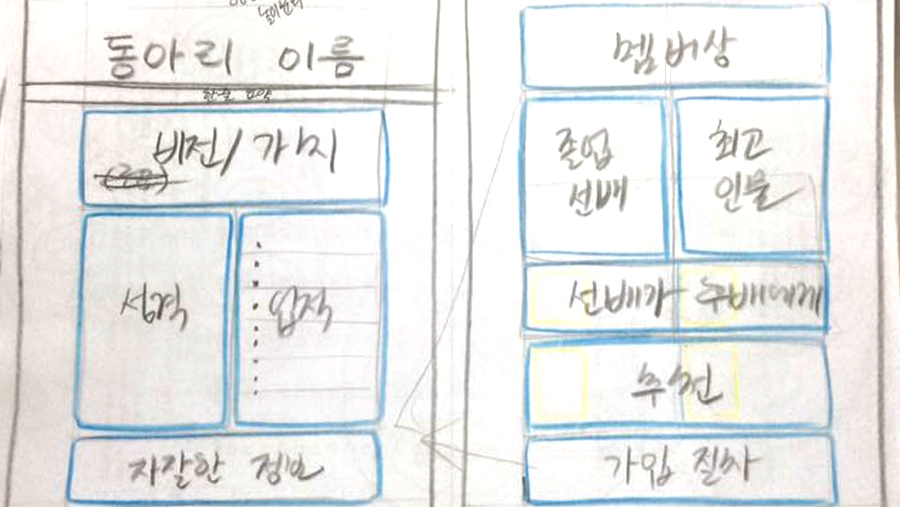 동아리 이름
한줄 요약
비전/가치
성격
업적
자잘한 정보
멤버상
졸업
선배
최고
인물
선배가 후배에게
추천
가입 절차